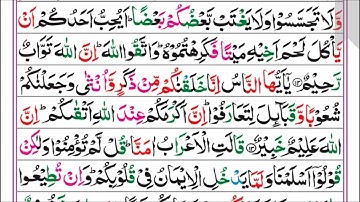 وَّلَا تَجَسَّسُوْا وَلَا یَغْتَبْ بَّعْضُكُمْ بَعْضًا ؕ اَیُحِبُّ اَحَدُكُمْ اَنْ
یَّاْكُلَ لَحْمَ اَخِیْهِ مَیْتًا فَكَرِهْتُمُوْهُ ؕ وَاتَّقُوا اللّٰهَ ؕ اِنَّ اللّٰهَ تَوَّابٌ
رَّحِیْمٌ ۝ یٰۤاَیُّهَا النَّاسُ اِنَّا خَلَقْنٰكُمْ مِّنْ ذَكَرٍ وَّاُنْثٰی وَجَعَلْنٰكُمْ
شُعُوْبًا وَّقَبَآئِلَ لِتَعَارَفُوْا ؕ اِنَّ اَكْرَمَكُمْ عِنْدَ اللّٰهِ اَتْقٰىكُمْ ؕ اِنَّ
اللّٰهَ عَلِیْمٌ خَبِیْرٌ ۝ قَالَتِ الْاَعْرَابُ اٰمَنَّا ؕ قُلْ لَّمْ تُؤْمِنُوْا وَلٰكِنْ
قُوْلُوْۤا اَسْلَمْنَا وَلَمَّا یَدْخُلِ الْاِیْمَانُ فِیْ قُلُوْبِكُمْ ؕ وَاِنْ تُطِیْعُوا